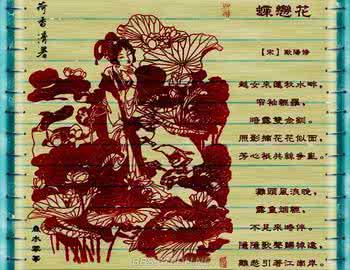 蝶戀花
【宋】歐陽修
越女采蓮秋水畔，
窄袖輕羅，
暗露雙金釧。
照影摘花花似面，
芳心祇共絲爭亂。
灘頭風浪晚，
露重煙輕，
不見來時伴。
隱隱歌聲歸棹遠，
離愁引著江南岸。
荷香清